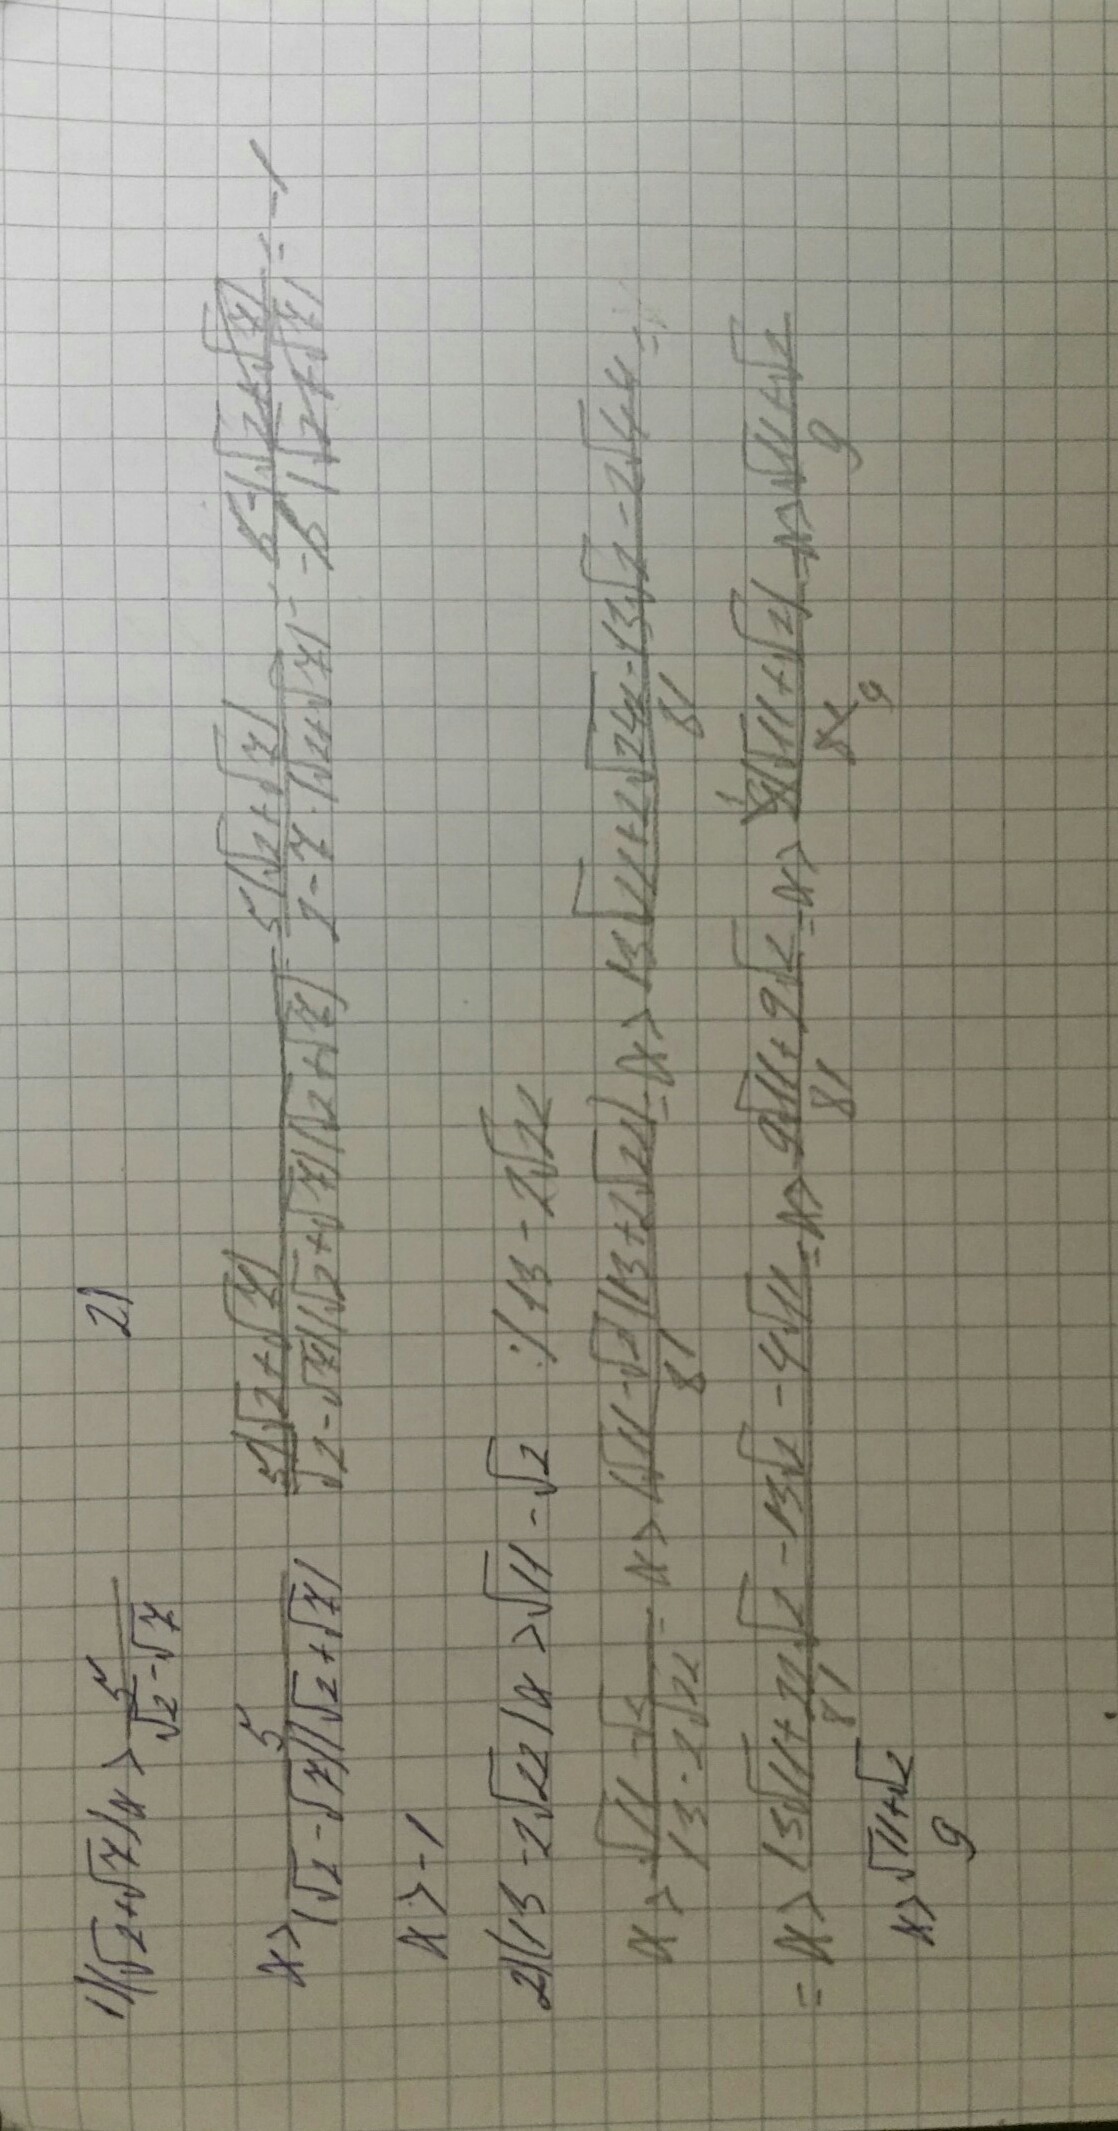 1)(√2+√7)x > 5/(√2-√7)
2)
x > 5/((√2-√7)(√2+√7)) 5(√2+√7)/((√2-√7)(√2+√7)(√2+√7)) = 5(√2+√7)/(2-7·(√2+√7)) = 5·(√2+√7)/(-5(√2+√7)) = -1
x > -1
2)(13-2√22)x > √11-√2 :(13-2√22
x > (√11-√2)/(13-2√22) = x > (√11-√2)(13+2√22)/81 = x > (13√11+2√242-13√2-2√44)/81 =
= x > (13√11+22√2-13√2-4√11)/81 = x > (9√11+9√2)/81 = x > 9(√11+√2)/81 = x > (√11+√2)/9
x > (√11+√2)/9